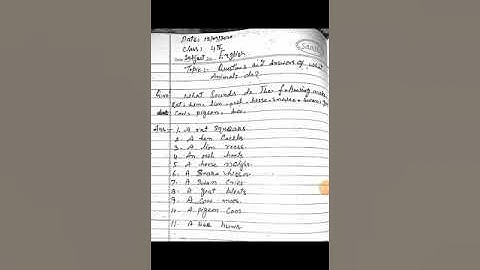 Date:
Class: 4th
Subject:- English
Topic:- Questions and Answers of, What
Animals do?
What Sounds do The following make
Rat, hen, lion, owl, horse, snake, swan,
Cow, pigeon, bee.
Ans:- 1. A rat squeaks
2. A hen cackles
3. A lion roars
4. An owl hoots
5. A horse neighs.
6. A Snake hisses
7. A Swan cries
8. A goat bleats
9. A Cow moos.
10. A pigeon Coos
11. A bee hums